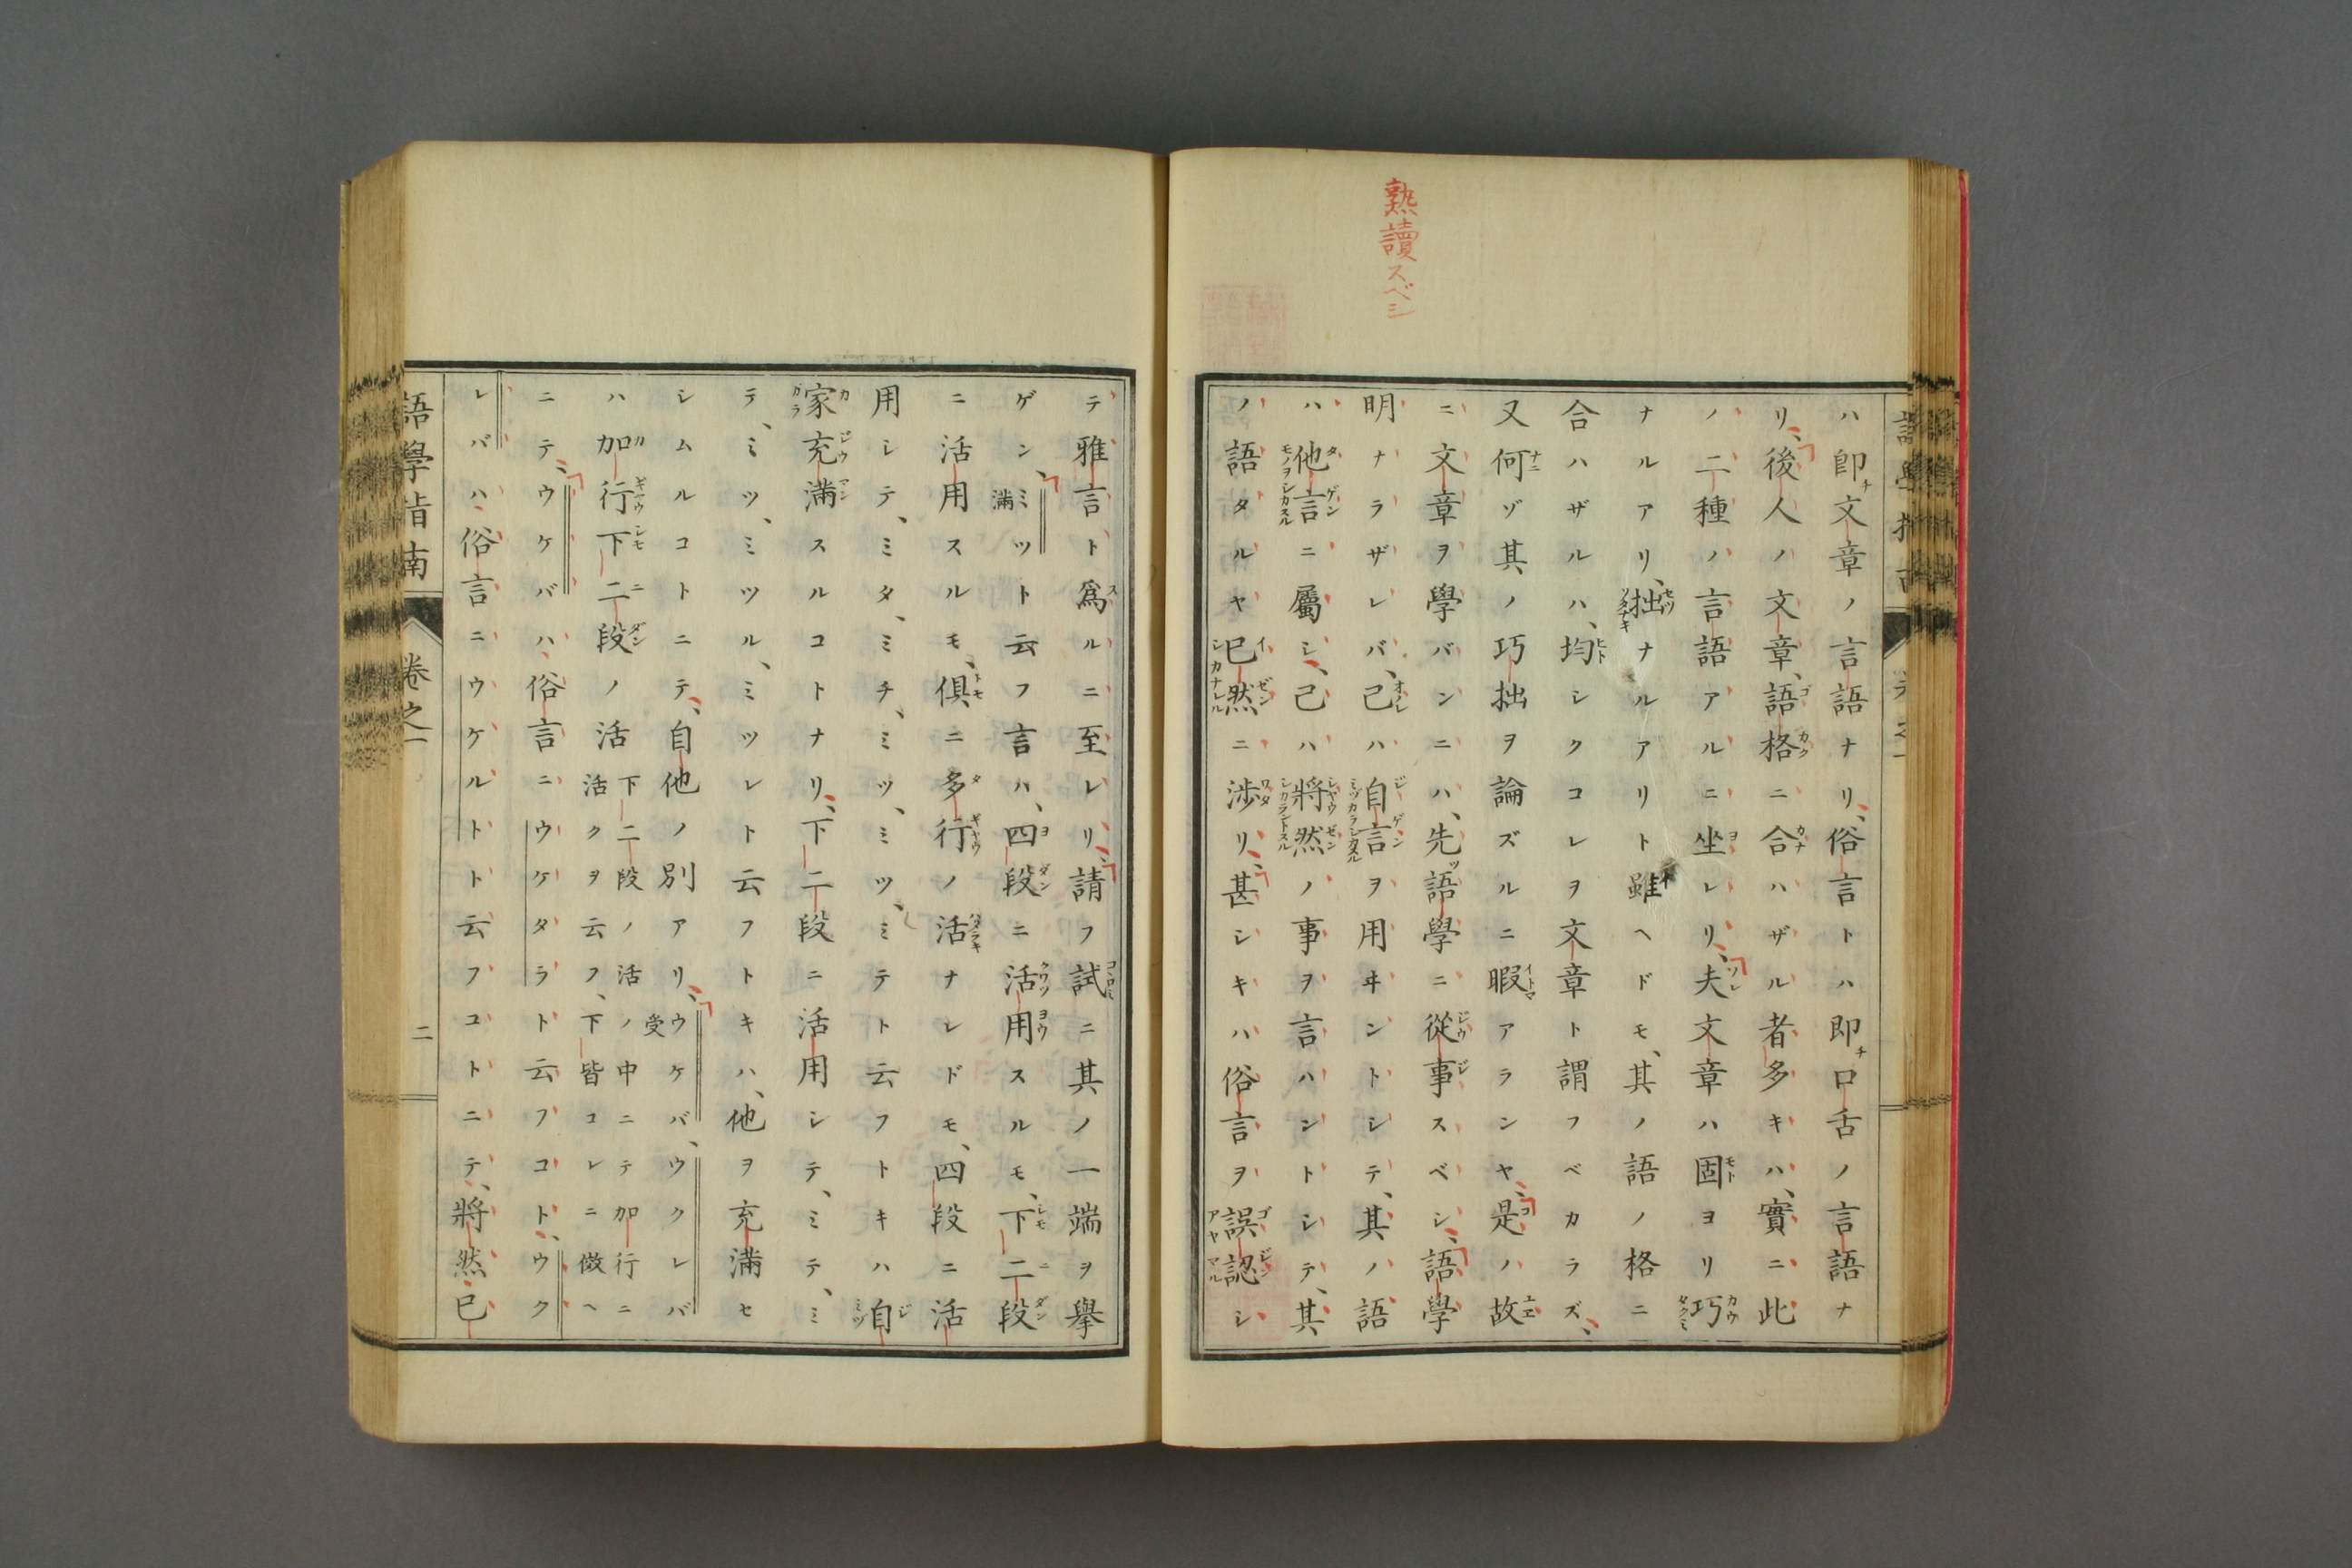 熟讀スベシ
ハ卽チ文章ノ言語ナリ、俗言トハ即チ口舌ノ言語ナ
リ、後人ノ文章、語格ニ合ハザル者多キハ、實ニ此
ノ二種ノ言語アルニ坐レリ、夫文章ハ固ヨリ巧
ナルアリ、拙ナルアリト雖ヘドモ、其ノ語ノ格ニ
合ハザルハ、均シクコレヲ文章ト謂フベカラズ、
又何ゾ其ノ巧拙ヲ論ズルニ暇アランヤ、是ノ故
ニ文章ヲ學バンニハ、先ヅ語學ニ從事スベシ、語學
明ナラザレバ、己ハ自言ヲ用ヰントシテ、其ノ語
ハ他言ニ屬シ、己ハ將然ノ事ヲ言ハントシテ、其
ノ語タルヤ已然ニ涉リ、甚シキハ俗言ヲ誤認シ
テ雅言ト爲ルニ至レリ、請フ試ニ其ノ一端ヲ擧
ゲン、ミツ滿ト云フ言ハ、四段ニ活用スルモ、下二段
ニ活用スルモ、俱ニ多行ノ活ナレドモ、四段ニ活
用シテ、ミタ、ミチ、ミツ、ミツ、ミテト云フトキハ自
家充滿スルコトナリ、下二段ニ活用シテ、ミテ、ミ
テ、ミツ、ミツル、ミツレト云フトキハ、他ヲ充滿セ
シムルコトニテ、自他ノ別アリ、ウケバ受、ウクレバ
ハ加行下二段ノ活下二段ノ活ノ中ニテ加行ニ活クヲ云フ、下皆コレニ傚ヘ
ニテ、ウケバハ、俗言ニウケタラト云フコト、ウク
レバハ俗言ニウケルトト云フコトニテ、將然已
語學指南 卷之一 二